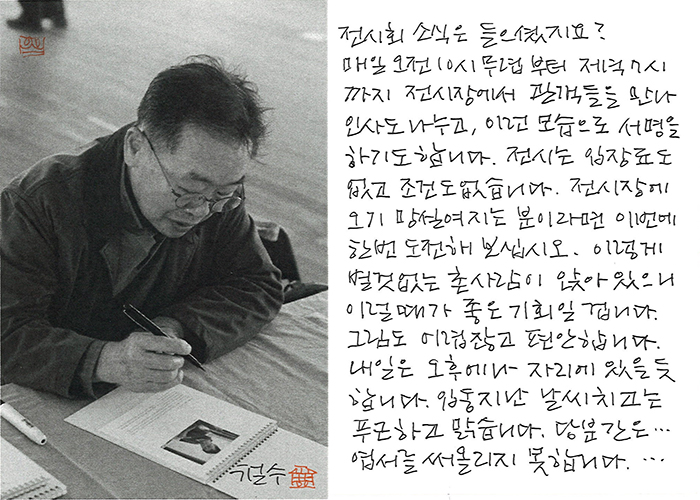 전시회 소식은 들으셨지요?
매일 오전 10시 무렵부터 저녁 7시
까지 전시장에서 관객들을 만나
인사도 나누고, 이런 모습으로 서명을
하기도 합니다. 전시는 입장료도
없고 조건도 없습니다. 전시장에
오기 망설여지는 분이라면 이번에
한번 도전해 보십시오. 이렇게
별것없는 촌사람이 앉아 있으니
이럴때가 좋은 기회일 겁니다.
그림도 어렵잖고 편안합니다.
내일은 오후에나 자리에 있을 듯
합니다. 입동지난 날씨치고는
푸근하고 맑습니다. 당분간은…
엽서를 써 올리지 못합니다. …
철수